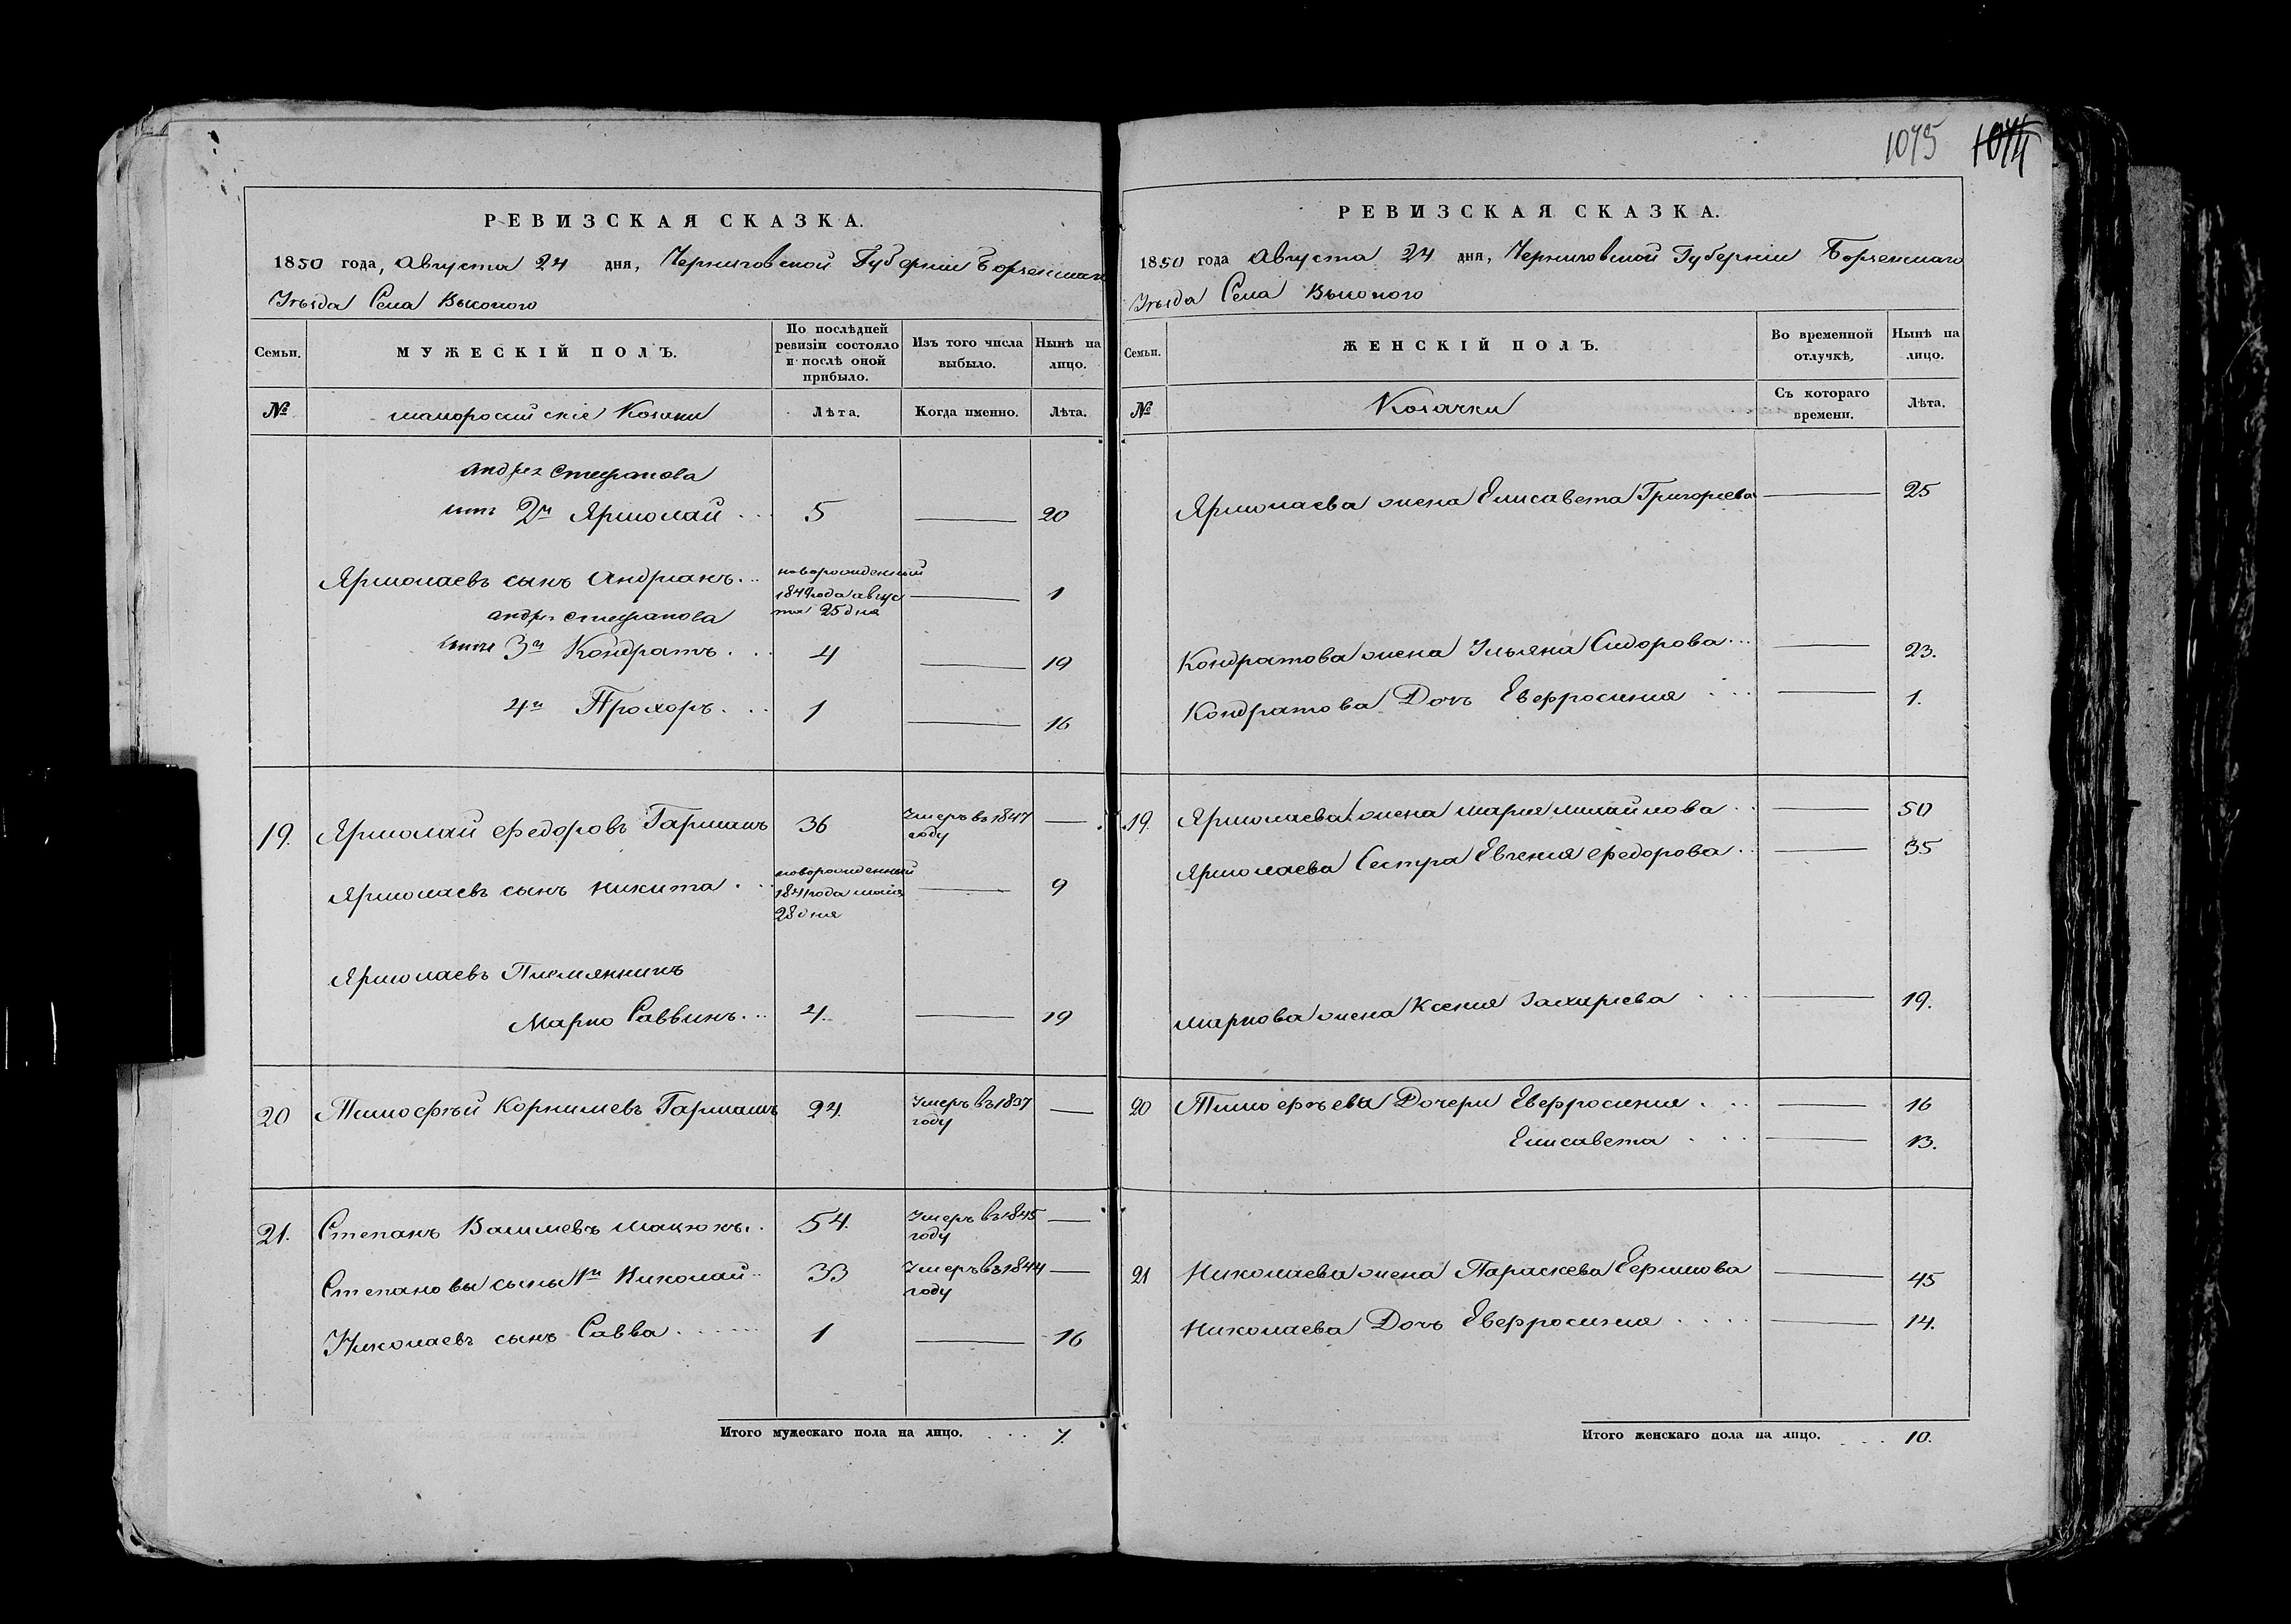 1075 1074
РЕВИЗСКАЯ СКАЗКА.
1850 года, Августа 24 дня, Черниговской Губерніи Борзенскаго
Уѣзда Села Высокого
Семьи.
МУЖЕСКІЙ ПОЛЪ.
По послѣдней ревизіи состояло и послѣ оной прибыло.
Изъ того числа выбыло.
Нынѣ на лицо.
№
малоросійскіе Козаки
Лѣта.
Когда именно.
Лѣта.
Степанова
2й Ярмолай 5 20
Ярмолаевъ сынъ Андріанъ новорожденный 1849 года авгус та 25 дня 1
Степанова
3й Кондратъ 4 19
4й Прохоръ 1 16
19. Ярмолай Федоровъ Гармашъ 36 Умеръ въ 1847 году
Ярмолаевъ сынъ Никита новорожденный 1841 года маія 28 дня 9
Ярмолаевъ Племянникъ
Марко Саввинъ 4. 19
20 Тимофѣй Корниліевъ Гармашъ 24 Умеръ въ 1837 году
21. Степанъ Василіевъ 54. Умеръ въ 1845 году
Степановы сыны 1й Николай 33 Умеръ въ 1844 году
Николаевъ сынъ Савва 1 16
Итого мужескаго пола на лицо. 7.
РЕВИЗСКАЯ СКАЗКА.
1850 года Августа 24 дня, Черниговской Губерніи Борзенскаго
Уѣзда Села Высокого
Семьи.
ЖЕНСКІЙ ПОЛЪ.
Во временной отлучкѣ,
Нынѣ на лицо.
№
Козачки
Съ котораго времени.
Лѣта.
Ярмолаева жена Елисавета Григоріева 25
Кондратова жена Ульяна Сидорова 23.
Кондратова Дочъ Евфросинія 1.
19. Ярмолаева жена Марія Михайлова 50
Ярмолаева Сестра Евгенія Федорова 35
Маркова жена Ксенія Захаріева 19.
20 Тимофѣева Дочери Евфросинія 16
Елисавета 13.
21 Николаева жена Параскева Ефимова 45
Николаева Дочъ Евфросинія 14.
Итого женскаго пола на лицо. 10.